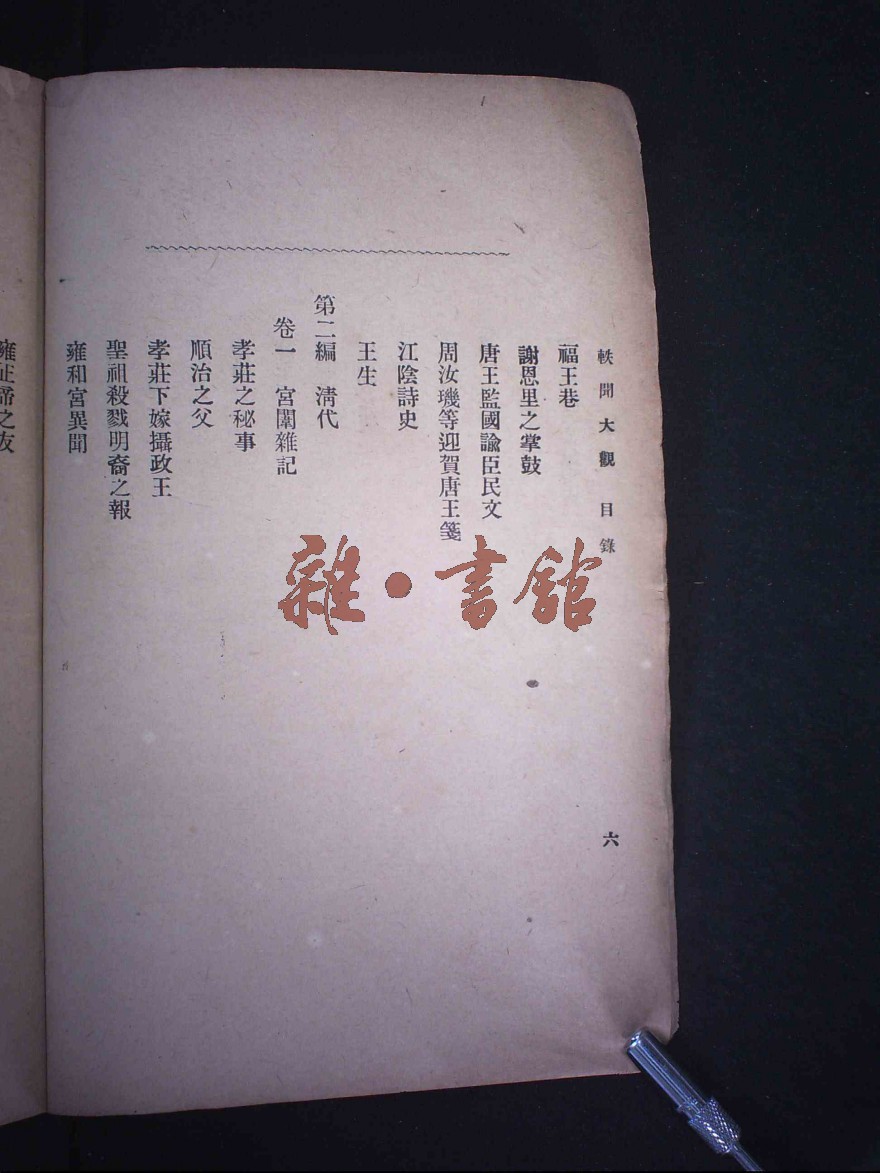 軼聞大觀 目錄
六
福王巷
謝恩里之掌鼓
唐王監國諭臣民文
周汝璣等迎賀唐王箋
江陰詩史
王生
第二編 清代
卷一 宮闈雜記
孝莊之秘事
順治之父
孝莊下嫁攝政王
聖祖殺戮明裔之報
雍和宮異聞
雍正帝之友
雜·書館